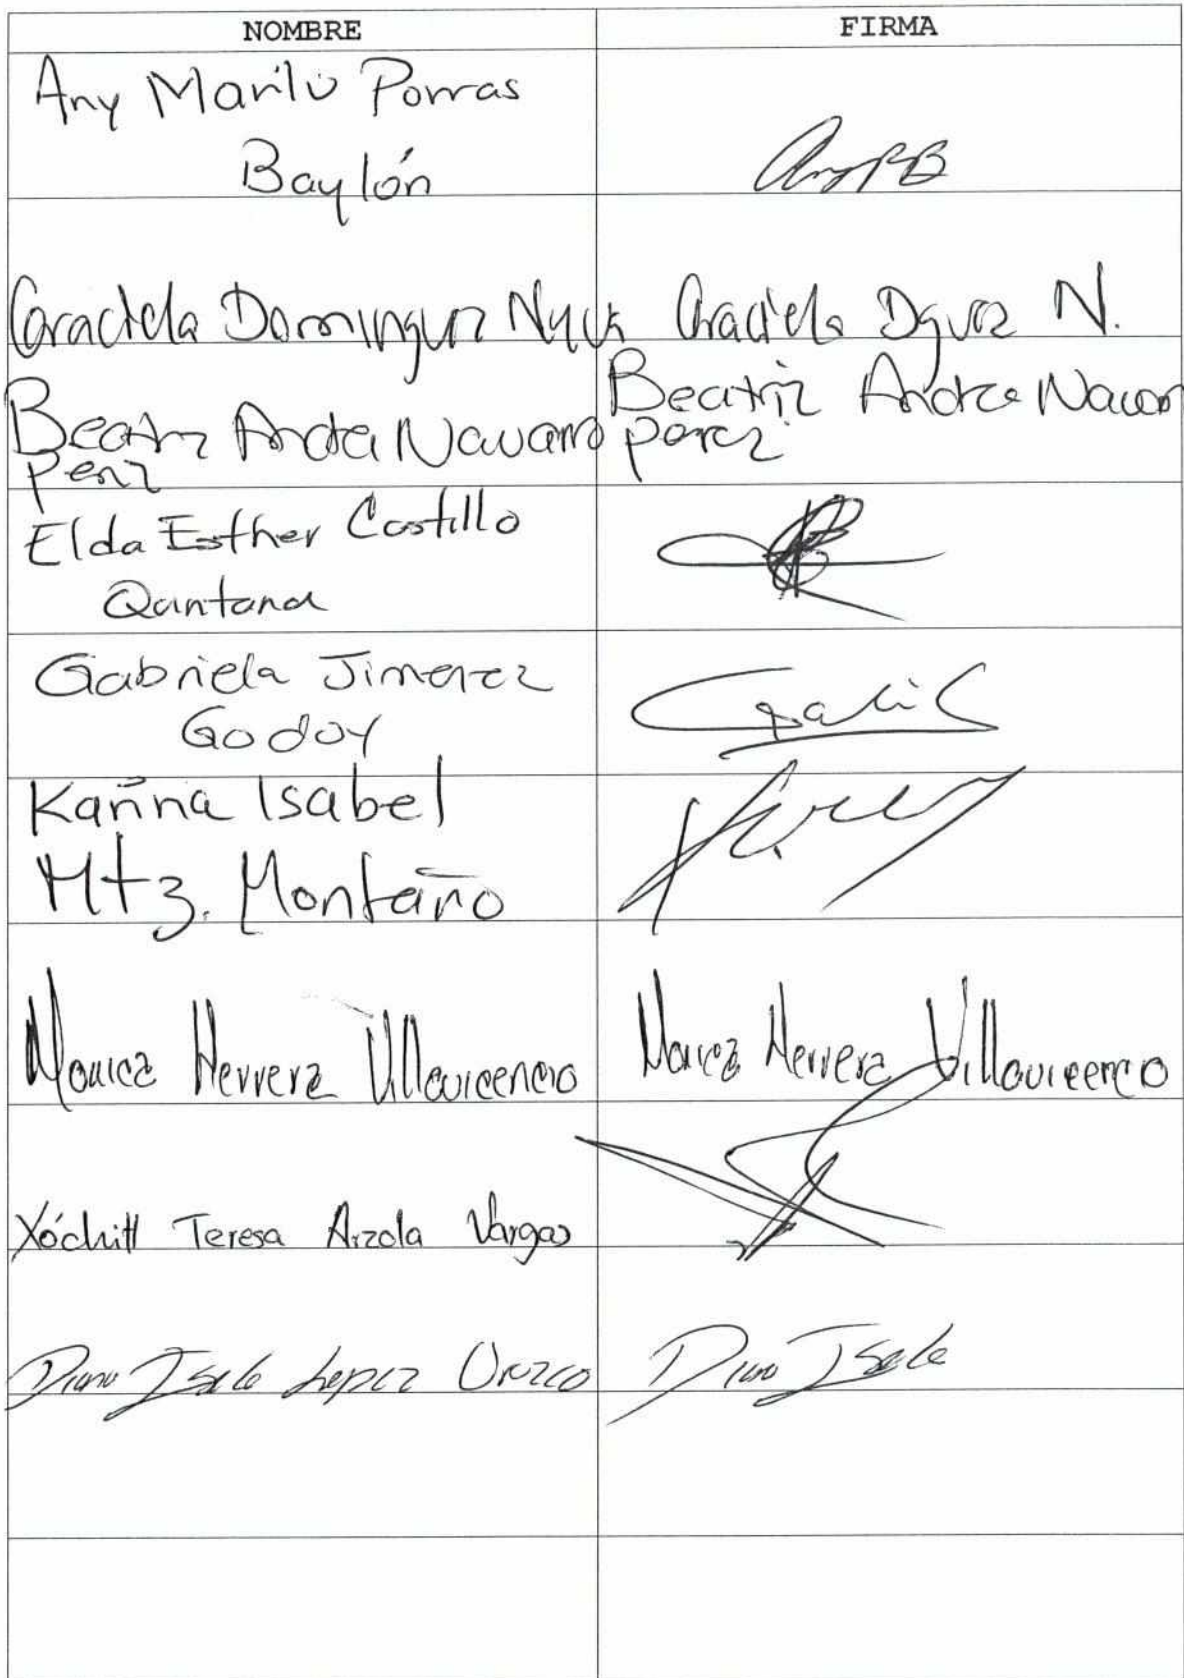 NOMBRE FIRMA
Any Marilú Porras
Baylón
Graciela Dominguez N. Graciela Dguez N.
Beatriz Andrea Navarro Beatriz Andrea Navarro
perez perez
Elda Esther Castillo
Quintana
Gabriela Jimenez
Godoy
Karina Isabel
Mtz. Montaño
Monica Herrera Villavicencio Monica Herrera Villavicencio
Xóchitl Teresa Arzola Vargas
Diana Isela Lopez Orozco Diana Isela